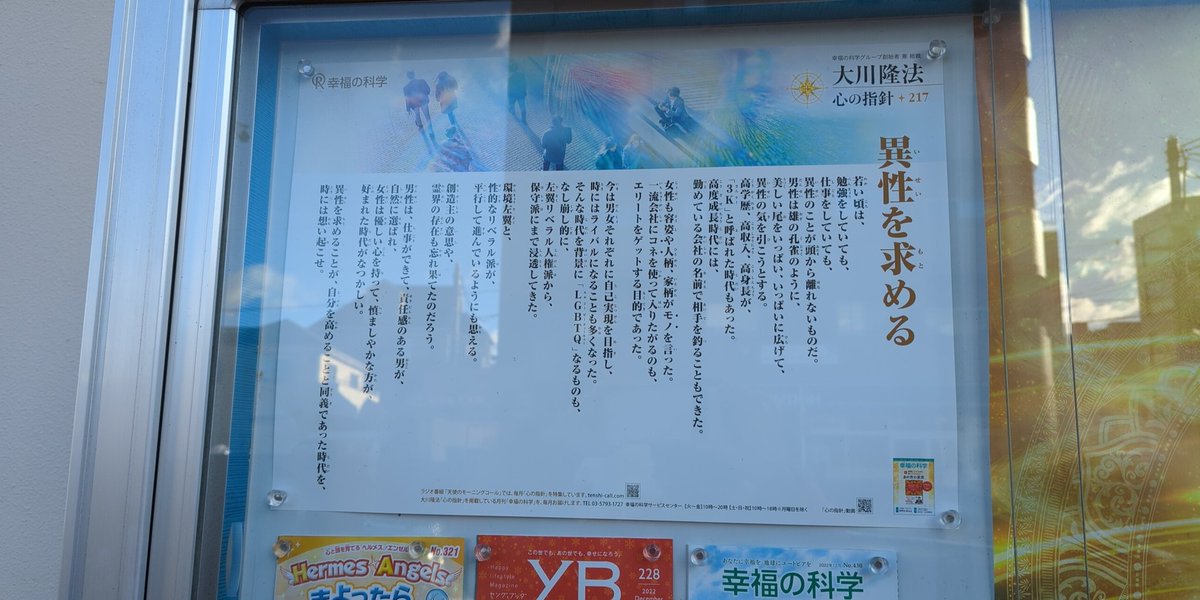 幸福の科学
幸福の科学グループ創始者 兼 総裁
大川隆法
心の指針 217
異性を求める
若い頃は、
勉強をしていても、
仕事をしていても、
異性のことが頭から離れないものだ。
男性は雄の孔雀のように、
美しい尾をいっぱい、いっぱいに広げて、
異性の気を引こうとする。
高学歴、高収入、高身長が、
「3K」と呼ばれた時代もあった。
高度成長時代には、
勤めている会社の名前で相手を釣ることもできた。
女性も容姿や人柄、家柄がモノを言った。
一流会社にコネを使って入りたがるのも、
エリートをゲットする目的であった。
今は男女それぞれに自己実現を目指し、
時にはライバルになることも多くなった。
そんな時代を背景に「LGBTQ」なるものも、
なし崩し的に、
左翼リベラル人権派から、
保守派にまで浸透してきた。
環境左翼と、
性的なリベラル派が、
平行して進んでいるようにも思える。
創造主の意思や、
霊界の存在も忘れ果てたのだろう。
男性は、仕事ができて、責任感のある男が、
自然に選ばれ、
女性は優しい心を持って、慎ましやかな方が、
好まれた時代がなつかしい。
異性を求めることが、自分を高めることと同義であった時代を、
時には想い起こせ。
ラジオ番組「天使のモーニングコール」では、毎月「心の指針」を特集しています。tenshi-call.com
大川隆法「心の指針」を掲載している月刊「幸福の科学」を、毎月お届けします。TEL 03-5793-1727 幸福の科学サービスセンター【火~金】10時~20時【土・日・祝】10時~18時※月曜日を除く
「心の指針」動画
幸福の科学
心と頭を育てる ヘルメス・エンゼルズ
No.321
Hermes Angels
きよったら
この世でも、あの世でも、幸せになろう。
Happy
Lifestyle
Magazine
ヤング・ブッダ
YB
228
2022
December
あなたに幸福を 地球にユートピアを
2022.12 No.430
幸福の科学